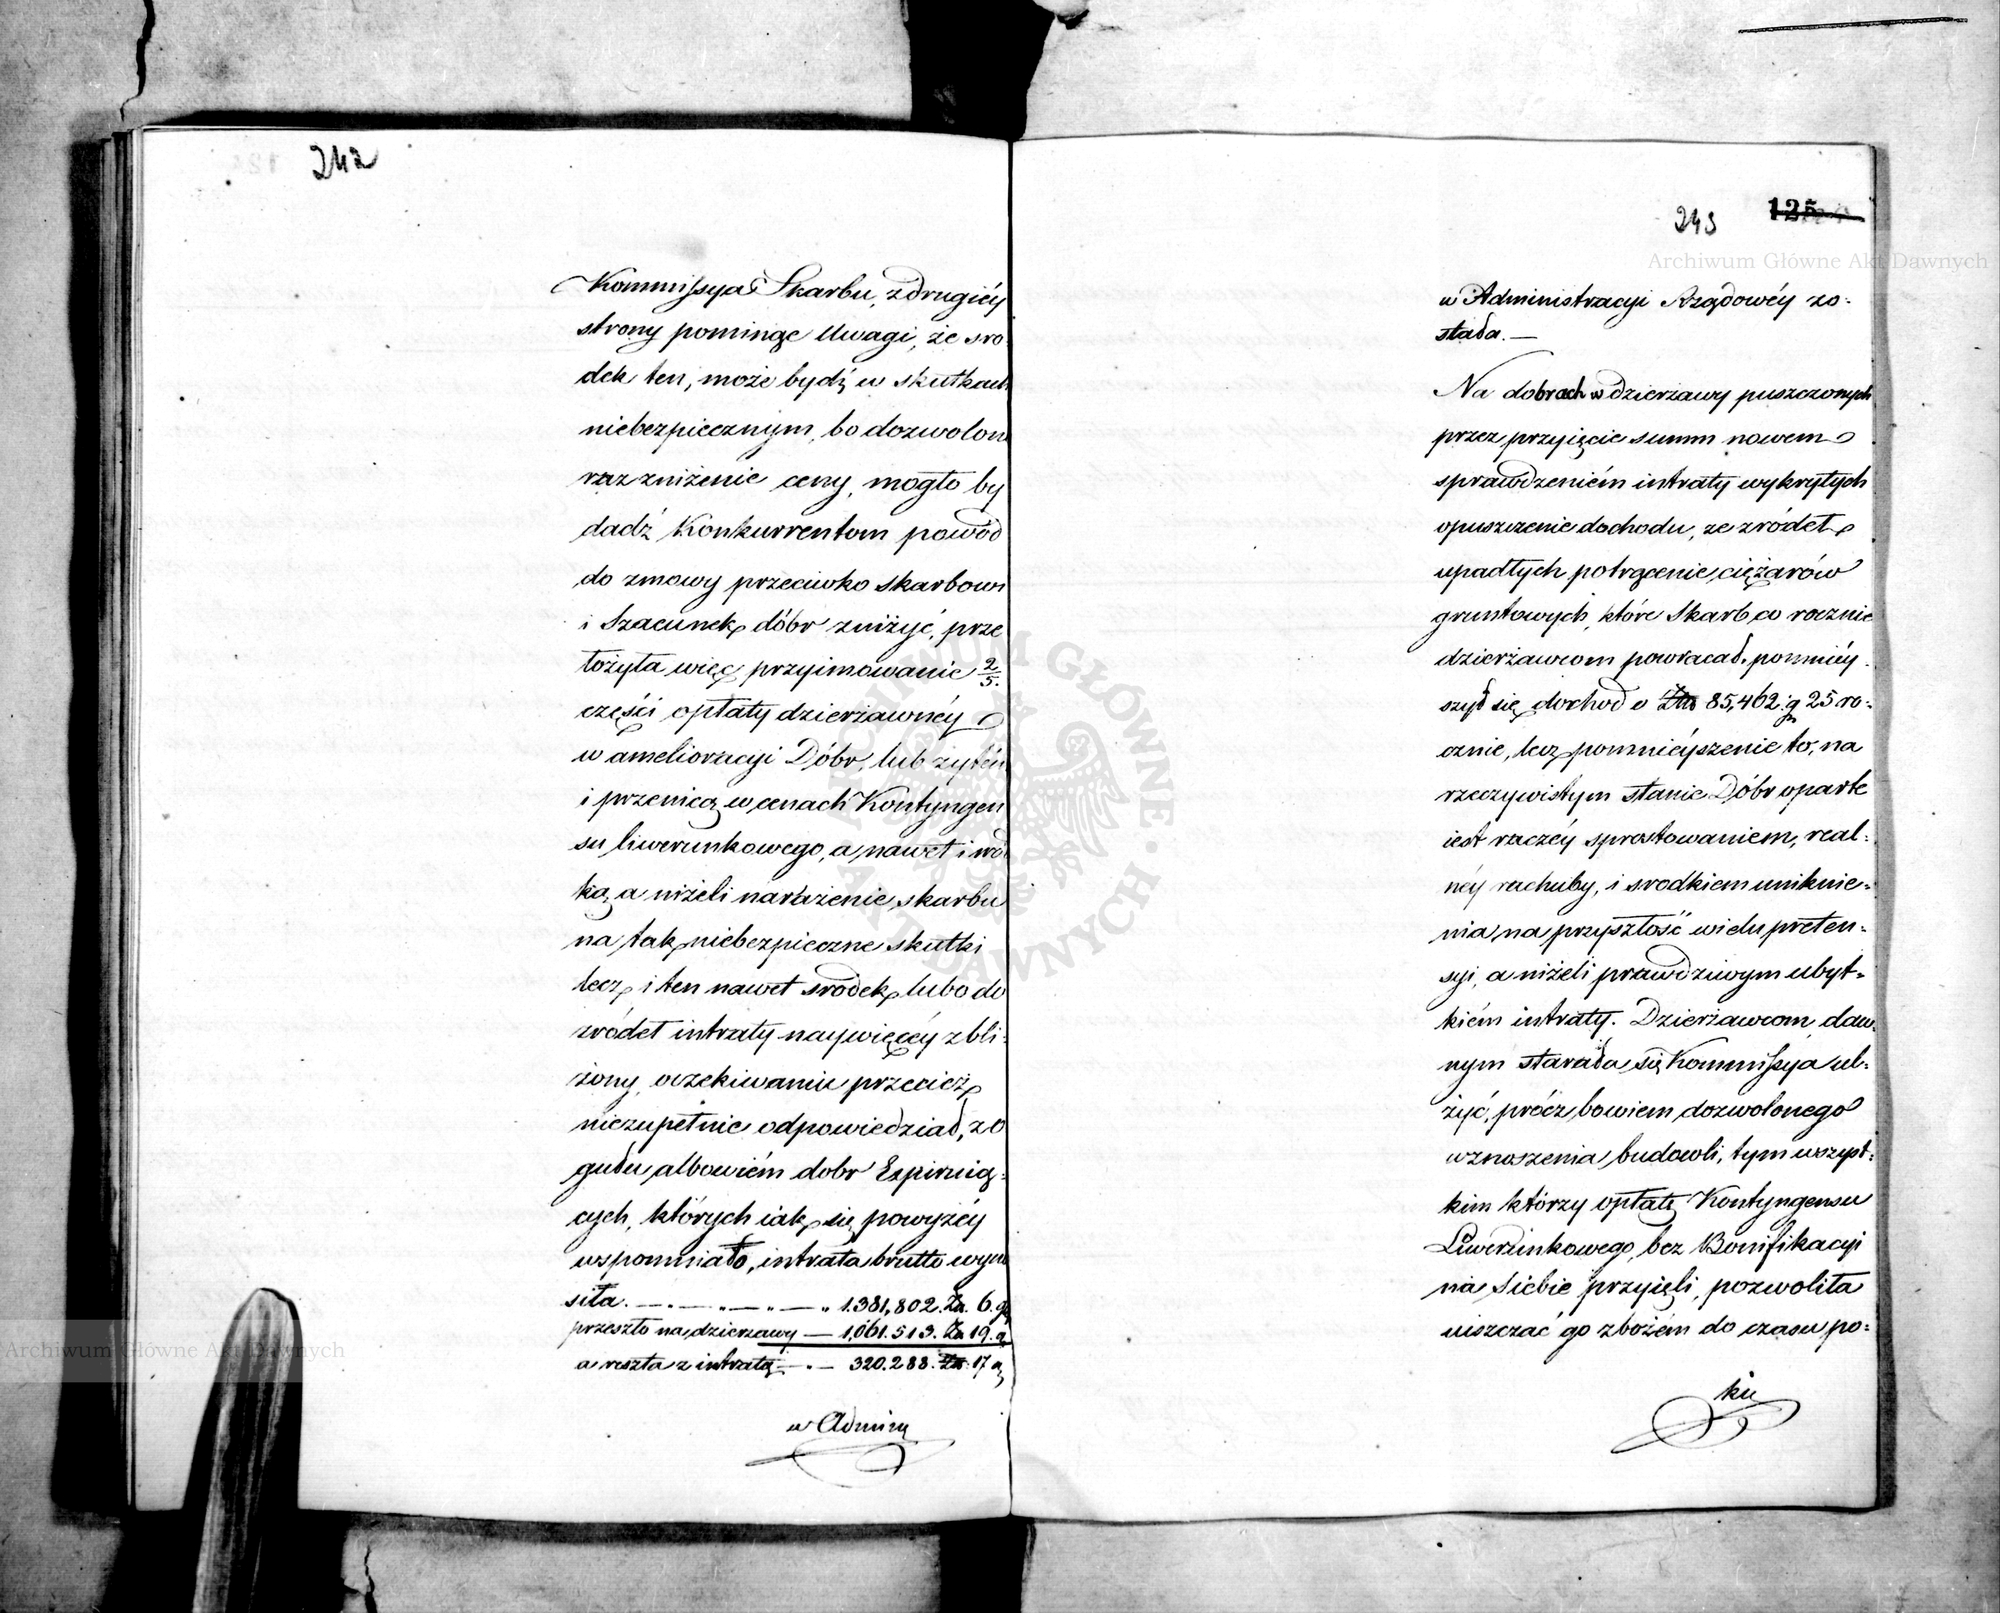 242
Kommissya Skarbu, z drugiéy
strony pominąc Uwagi, że sro
dek ten, może bydź w skutkach
niebezpiecznym, bo dozwolon
raz zniżenie ceny, mogło by
dadź Konkurrentom powód
do zmowy przeciwko skarbowi
i Szacunek dóbr zniżyć, prze
łożyła więc przyimowanie 2/5.
części opłaty dzierżawnéy
w amelioracyi Dóbr, lub żytém
i przenicą w cenach Kontyngen
su liwerunkowego, a nawet i wód
ką, a niżeli narażenie skarbu
na tak niebezpieczne skutki
lecz i ten nawet srodek, lubo do
zródeł intraty naywięcéy zbli:
żony, oczekiwaniu przecież
niezupełnie odpowiedział, zo
gułu albowiém dobr Expirują:
cych, których iak się powyżéy
wspomniało, intrata brutto wyno
siła. — . — . „ — „ . — „ 1.381,802. Zł. 6. g
przeszło na dzierżawy — 1,061.513. Zł 19. g
a reszta z intratą — . — 320.288. Zł. 17 g
w Admini
Archiwum Główne Akt Dawnych
243
125
Archiwum Główne Akt Dawnych
w Administracyi Rządowéy zo:
stała. —
Na dobrach w dzierżawy puszczonych
przez przyięcie summ nowem
sprawdzeniém intraty wykrytych
opuszczenie dochodu, ze zródeł
upadłych potrącenie ciężarów
gruntowych, które Skarb co rocznie
dzierżawcom powracał, pomniéy
szył się dochod o Zł 85,462. g 25 ro:
cznie, lecz pomnieyszenie to, na
rzeczywistym stanie Dóbr oparte
iest raczéy sprostowaniem, real:
néy rachuby, i srodkiem uniknie:
nia na przyszłość wielu preten:
syi, a niżeli prawdziwym ubyt:
kiém intraty. Dzierżawcom daw:
nym starała się Kommissya ul:
żyć, prócz bowiem dozwolonego
wznoszenia budowli, tym wszyst:
kim którzy opłatę Kontyngensu
Liwerunkowego, bez Bonifikacyi
na siebie przyięli, pozwoliła
uiszczać go zbożém do czasu po:
ki
ARCHIWUM GŁÓWNE AKT DAWNYCH